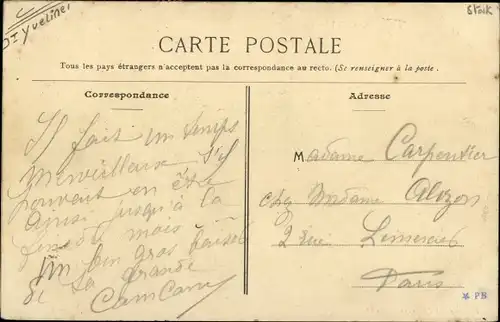 Yvelines
Stock
CARTE POSTALE
Tous les pays étrangers n'acceptent pas la correspondance au recto. (Se renseigner à la poste.
Correspondance
Adresse
Il fait un temps
merveilleux s'il
pouvait en être
ainsi jusqu'à la
fin du mois
Un bon gros baiser
de ta grande
Camcam
Madame Carpentier
chez Madame
2 rue
Paris
PB